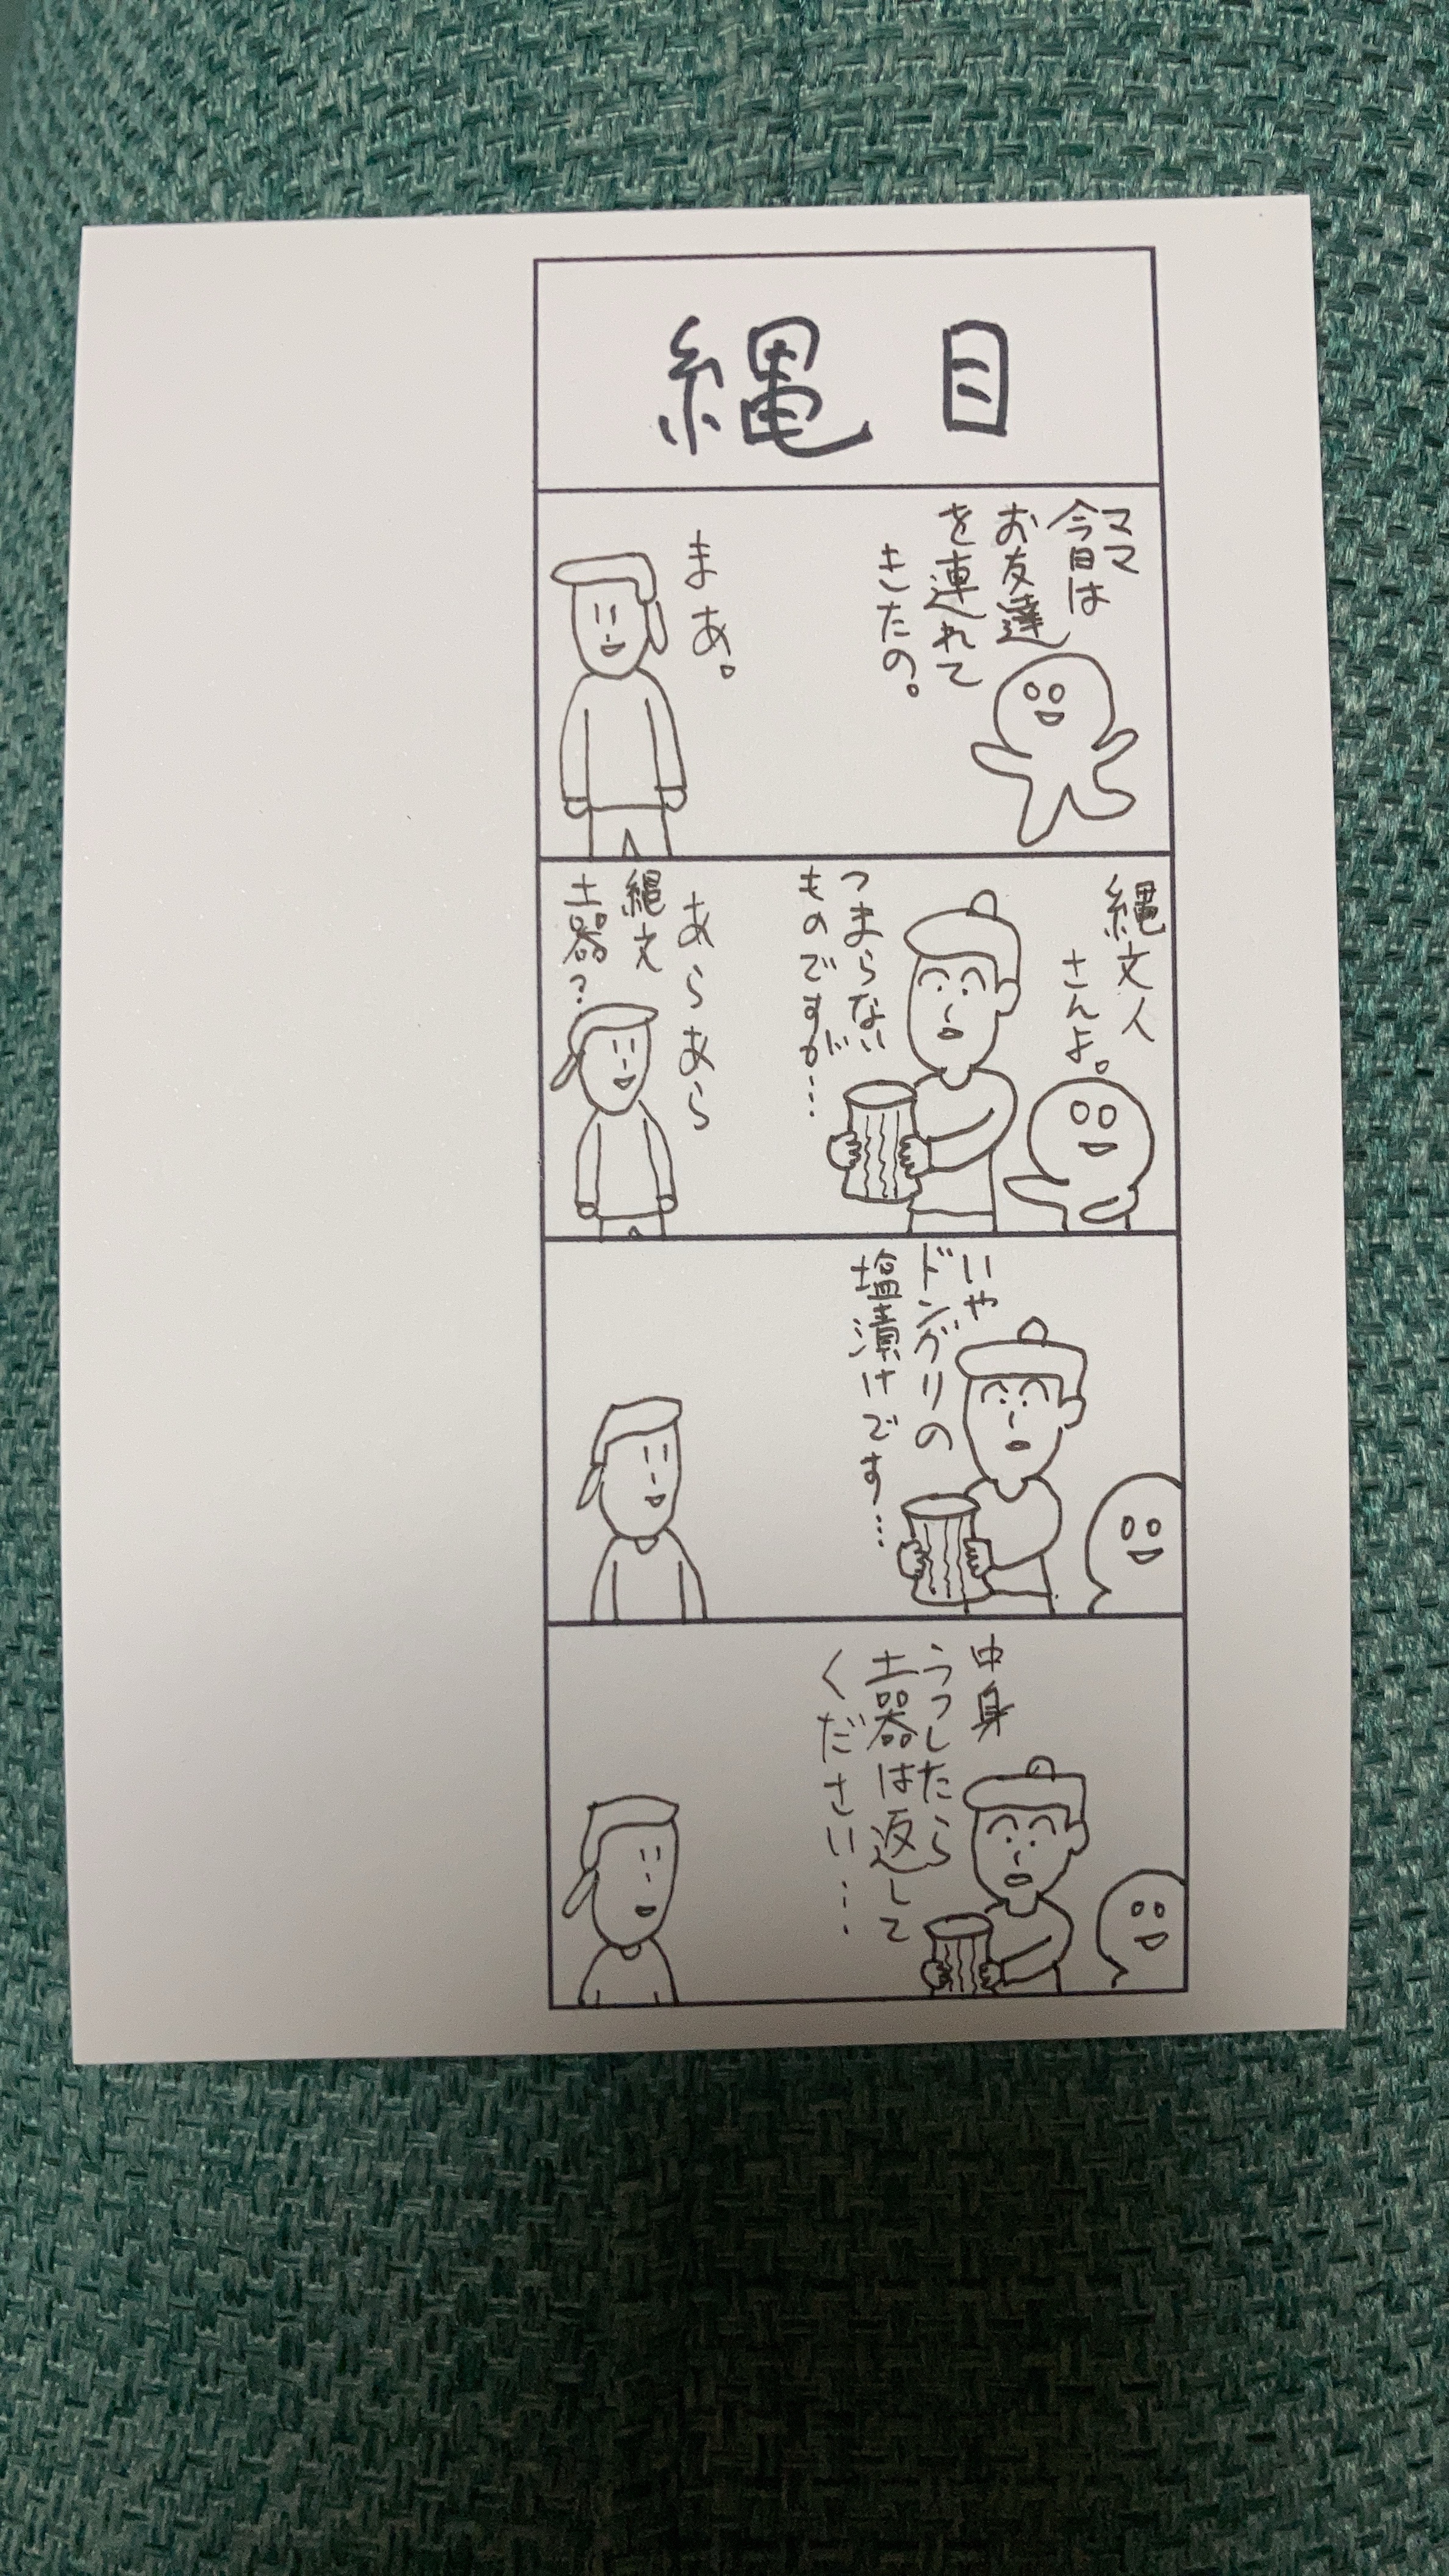 縄目
ママ
今日は
お友達
を連れて
きたの。
まあ。
縄文人
さんよ。
つまらない
ものですが…
あらあら
縄文
土器?
いや
ドングリの
塩漬けです…
中身
うつしたら
土器は返して
ください…